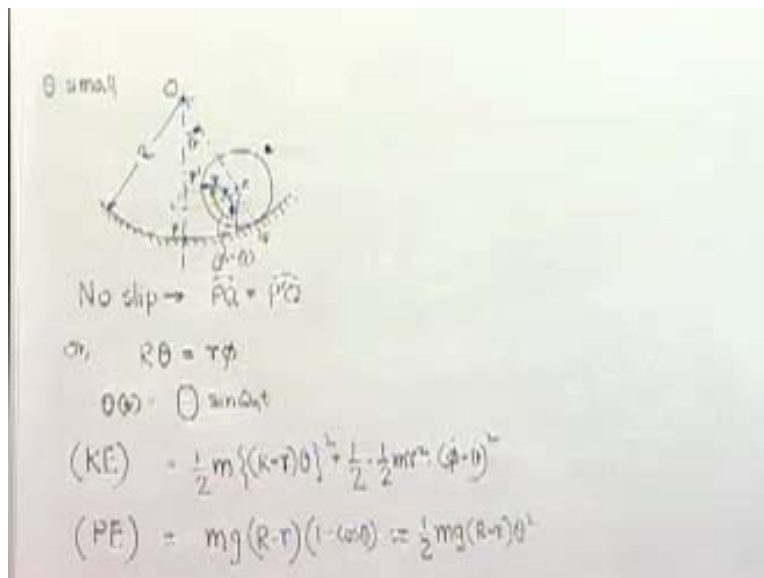 θ small
O
R
P'
P
No slip → PQ = P'Q
or, Rθ = rφ
θ(t) = Θ sin ωnt
(KE) = 1/2 m{(R-r)θ̇}² + 1/2 · 1/2 mr² · (φ̇-θ̇)²
(PE) = mg(R-r)(1-cosθ) ≈ 1/2 mg(R-r)θ²